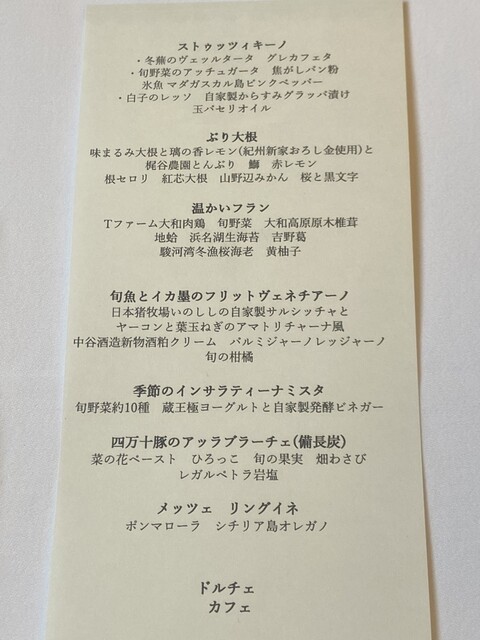 ストゥッツィキーノ
・冬蕪のヴェッルタータ　グレカフェタ
・旬野菜のアッチュガータ　焦がしパン粉
氷魚 マダガスカル島ピンクペッパー
・白子のレッソ　自家製からすみグラッパ漬け
玉パセリオイル
ぶり大根
味まるみ大根と璃の香レモン(紀州新家おろし金使用)と
梶谷農園とんぶり　鰤　赤レモン
根セロリ　紅芯大根　山野辺みかん　桜と黒文字
温かいフラン
Tファーム大和肉鶏　旬野菜　大和高原原木椎茸
地蛤　浜名湖生海苔　吉野葛
駿河湾冬漁桜海老　黄柚子
旬魚とイカ墨のフリットヴェネチアーノ
日本猪牧場いのししの自家製サルシッチャと
ヤーコンと葉玉ねぎのアマトリチャーナ風
中谷酒造新物酒粕クリーム　パルミジャーノレッジャーノ
旬の柑橘
季節のインサラティーナミスタ
旬野菜約10種　蔵王極ヨーグルトと自家製発酵ビネガー
四万十豚のアッラブラーチェ(備長炭)
菜の花ペースト　ひろっこ　旬の果実　畑わさび
レガルペトラ岩塩
メッツェ　リングイネ
ポンマローラ　シチリア島オレガノ
ドルチェ
カフェ